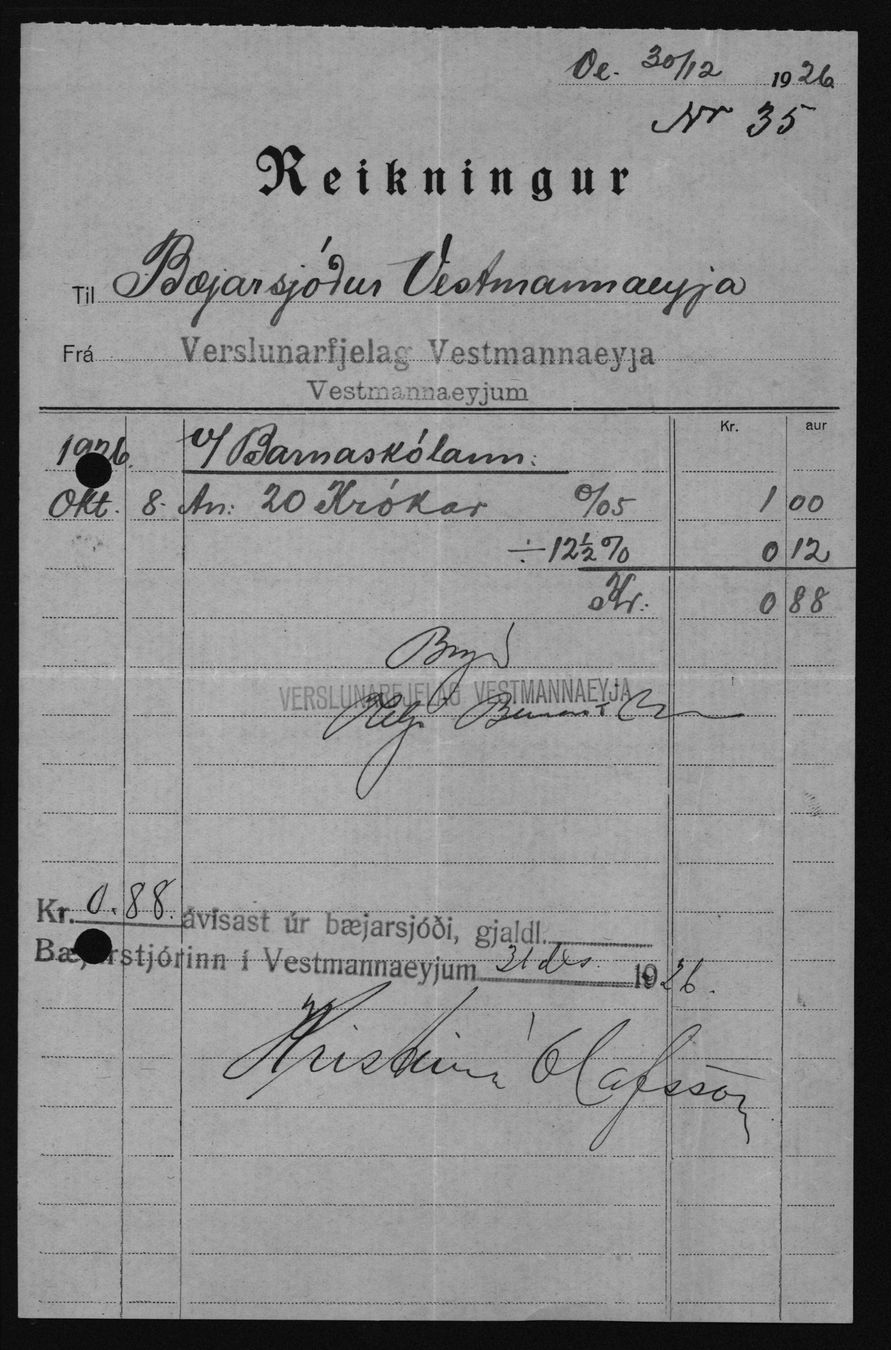 Ve. 30/12 1926
Nr 35
Reikningur
Til Bæjarsjóður Vestmannaeyja
Frá Verslunarfjelag Vestmannaeyja
Vestmannaeyjum
Kr. aur
1926. v/ Barnaskólann:
Okt. 8. An: 20 Krókar 0/05 1 00
÷ 12½ % 0 12
Kr: 0 88
VERSLUNARFJELAG VESTMANNAEYJA
Helgi
Kr. 0.88. ávísast úr bæjarsjóði, gjaldl.
Bæjarstjórinn í Vestmannaeyjum 31 des. 1926.
Kristinn Ólafsson